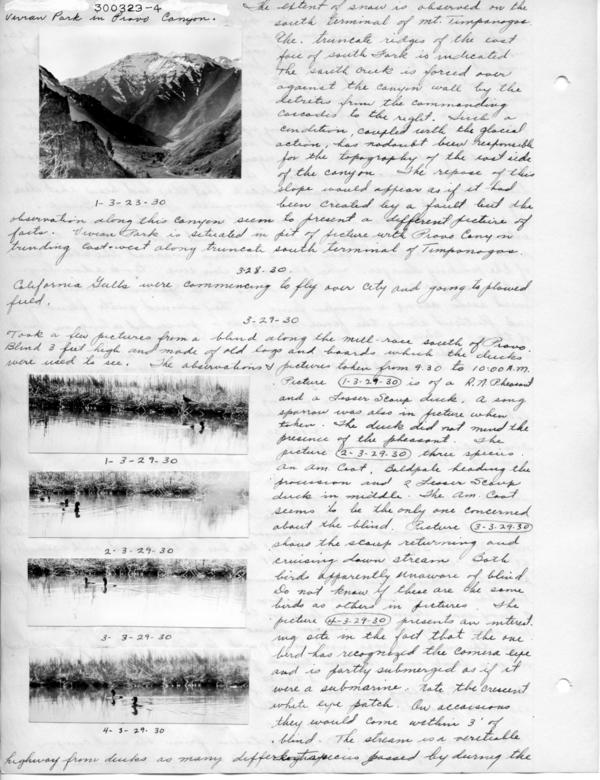 300323-4
Vivian Park in Provo Canyon.
The extent of snow is observed on the
south terminal of mt. Timpanogos
The truncate ridges of the east
face of south Fork is indicated.
The south creek is forced over
against the canyon wall by the
detritus from the commanding
cascades to the right. Such a
condition, coupled with the glacial
action, has nodoubt been responsible
for the topography of the east side
of the canyon. The repose of this
slope would appear as if it had
1-3-23-30
been created by a fault but the
observation along this canyon seem to present a different picture of
facts. Vivian Park is situated in pit of picture with Provo Canyon
trending east-west along truncate south terminal of Timponogos.
3-28-30.
California Gulls were commencing to fly over city and going to plowed
field.
3-29-30
Took a few pictures from a blind along the mill-race south of Provo.
Blind 3 feet high and made of old logs and boards which the ducks
were used to see. The observations & pictures taken from 9:30 to 10:00 A.M.
Picture 1-3-29-30 is of a R.N. Pheasant
and a Lesser Scaup duck. A song
sparrow was also in picture when
taken. The duck did not mind the
presence of the pheasant. The
1-3-29-30
picture 2-3-29-30 three species.
An Am. Coot, Baldpate heading the
procession and 2 Lesser Scaup
duck in middle. The Am. Coot
seems to be the only one concerned
about the blind. Picture 3-3-29-30
2-3-29-30
shows the scaup returning and
cruising down stream. Both
birds apparently unaware of blind.
Do not know if these are the same
birds as others in pictures. The
3-3-29-30
picture 4-3-29-30 presents an interest.
ing site in the fact that the one
bird has recognized the camera eye
and is partly submerged as if it
were a submarine. Note the crescent
white eye patch. On occaisions
they would come within 3' of
4-3-29-30
blind. The stream is a veritable
highway from ducks as many different species passed by during the